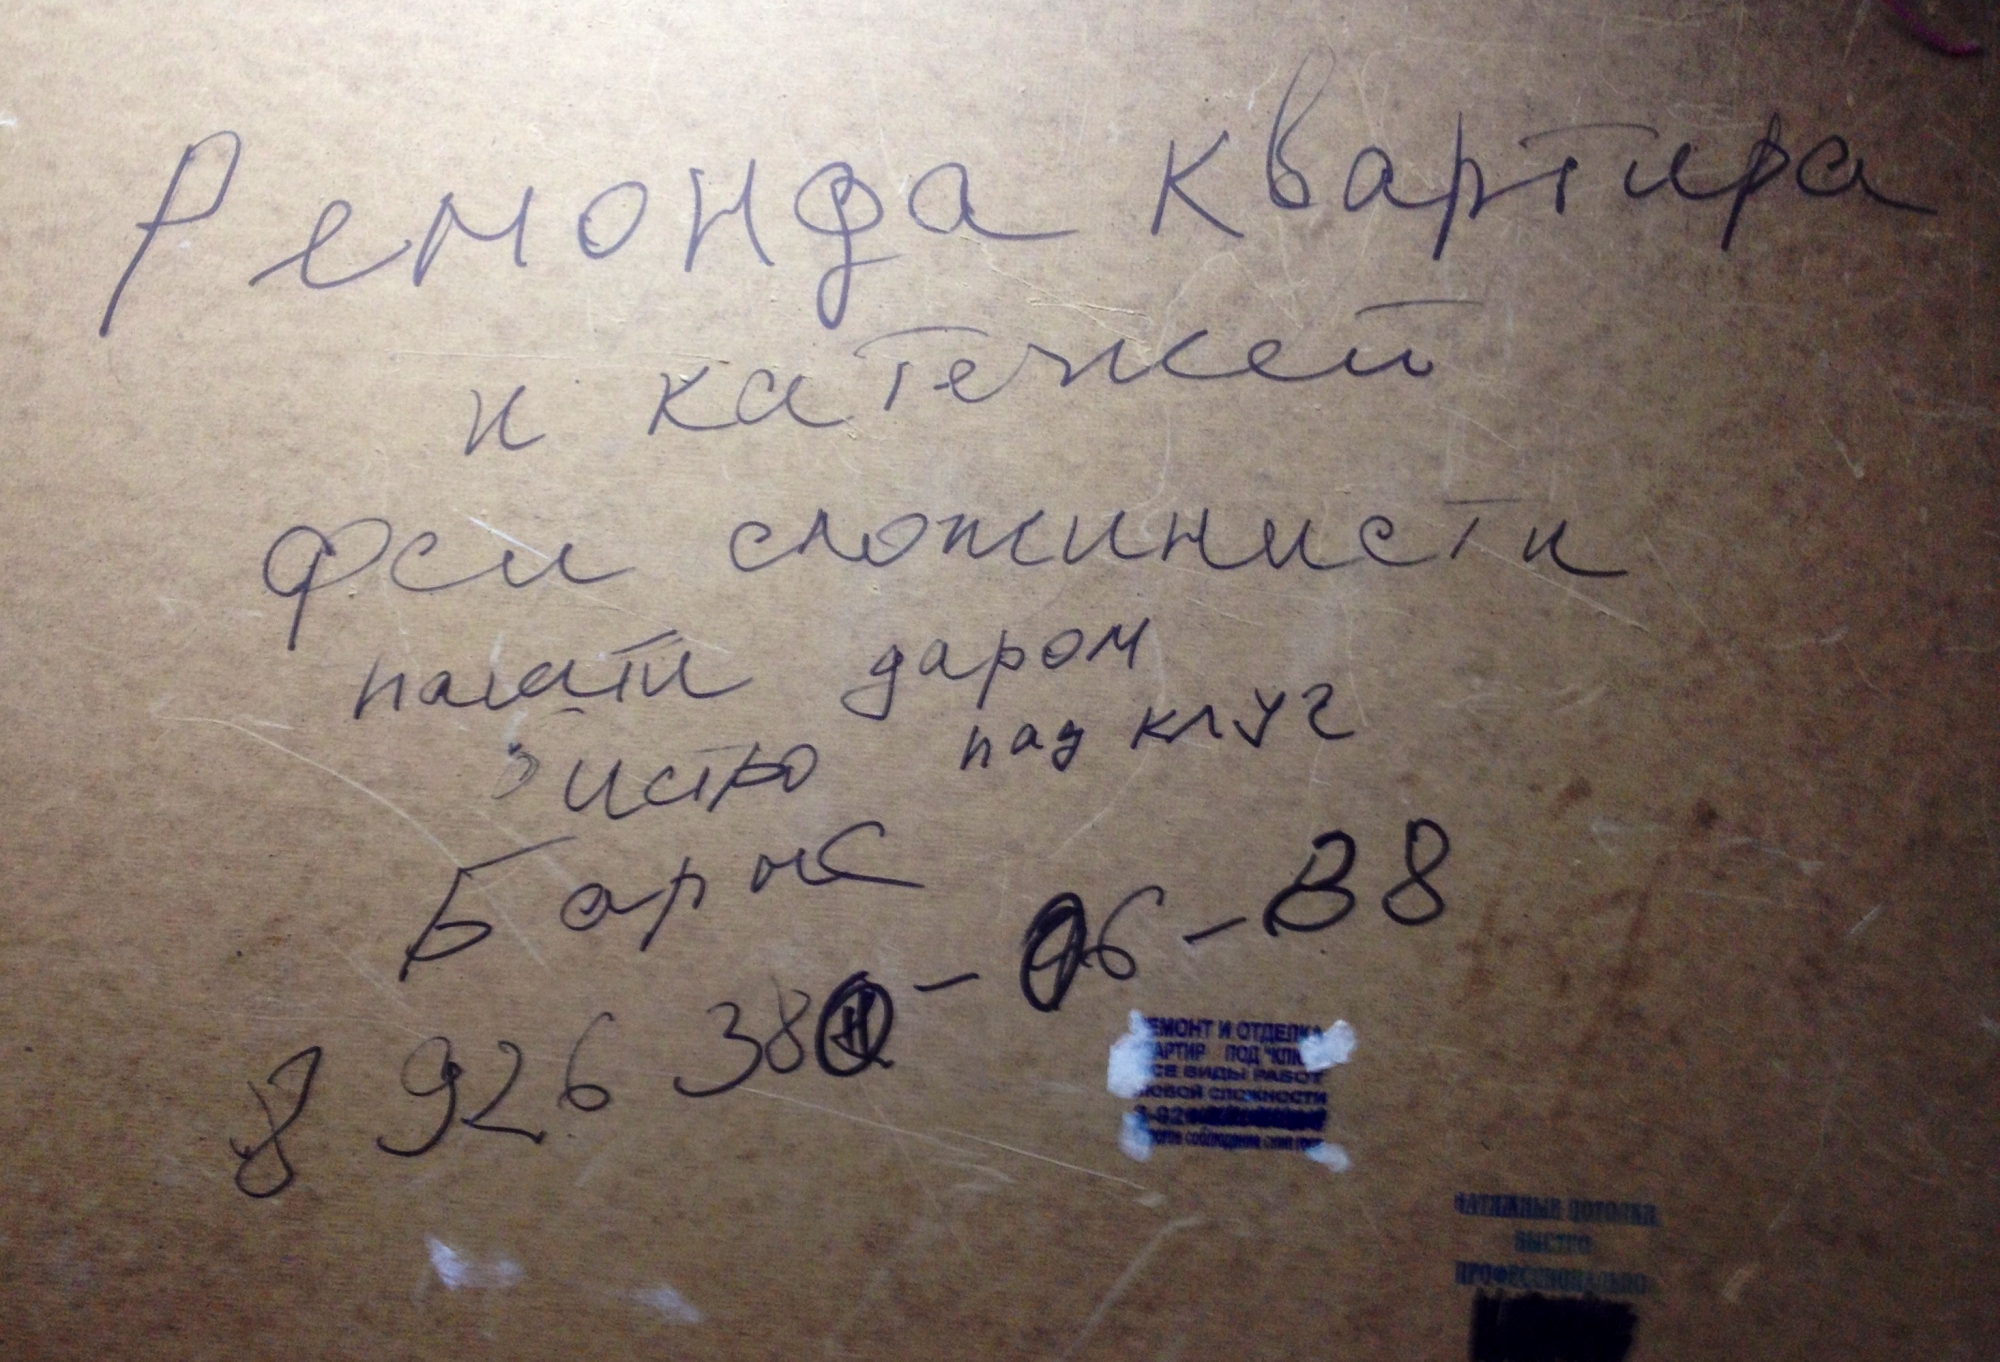 Ремонда квартира
и катежей
фси сложинисти
пачти даром
бистро пад клуч
Барис
8 926 380-06-88
РЕМОНТ И ОТДЕЛКА
КВАРТИР ПОД "КЛЮЧ"
ВСЕ ВИДЫ РАБОТ
ЛЮБОЙ СЛОЖНОСТИ
8-926
НАТЯЖНЫЕ ПОТОЛКИ
БЫСТРО
ПРОФЕССИОНАЛЬНО